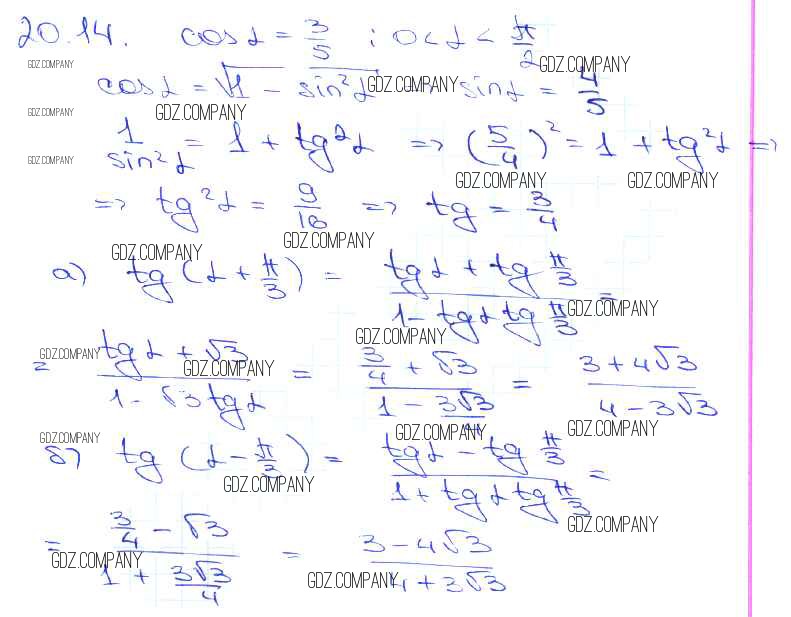 20.14. cos α = 3/5 ; 0 < α < π/2
GDZ.COMPANY GDZ.COMPANY
cos α = √(1 - sin²α) sin α = 4/5
GDZ.COMPANY
GDZ.COMPANY GDZ.COMPANY
1/sin²α = 1 + tg²α => (5/4)² = 1 + tg²α =>
GDZ.COMPANY
GDZ.COMPANY GDZ.COMPANY
=> tg²α = 9/16 => tg = 3/4
GDZ.COMPANY GDZ.COMPANY
а) tg (α + π/3) = (tg α + tg π/3)/(1 - tg α tg π/3) =
GDZ.COMPANY
GDZ.COMPANY
= (tg α + √3)/(1 - √3 tg α) = (3/4 + √3)/(1 - 3√3/4) = (3 + 4√3)/(4 - 3√3)
GDZ.COMPANY GDZ.COMPANY
GDZ.COMPANY GDZ.COMPANY GDZ.COMPANY
б) tg (α - π/3) = (tg α - tg π/3)/(1 + tg α tg π/3) =
GDZ.COMPANY
GDZ.COMPANY
= (3/4 - √3)/(1 + 3√3/4) = (3 - 4√3)/(4 + 3√3)
GDZ.COMPANY GDZ.COMPANY